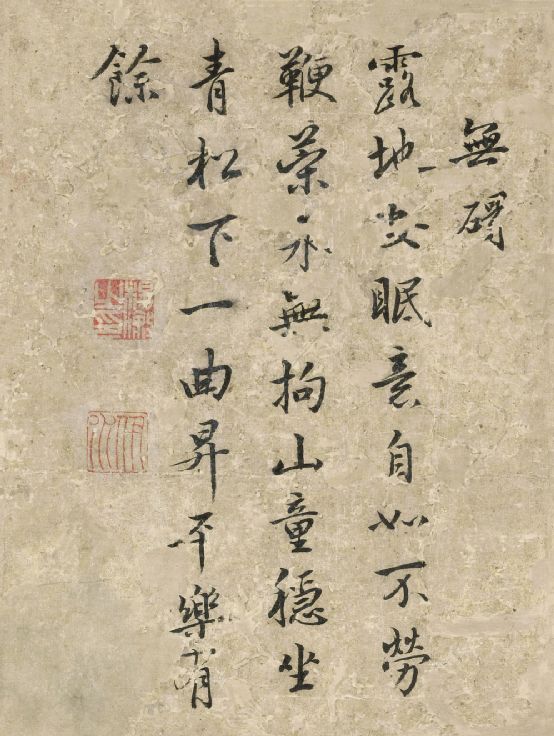 無碍
露地安眠意自如不勞
鞭策永無拘山童穩坐
青松下一曲昇平樂有
餘